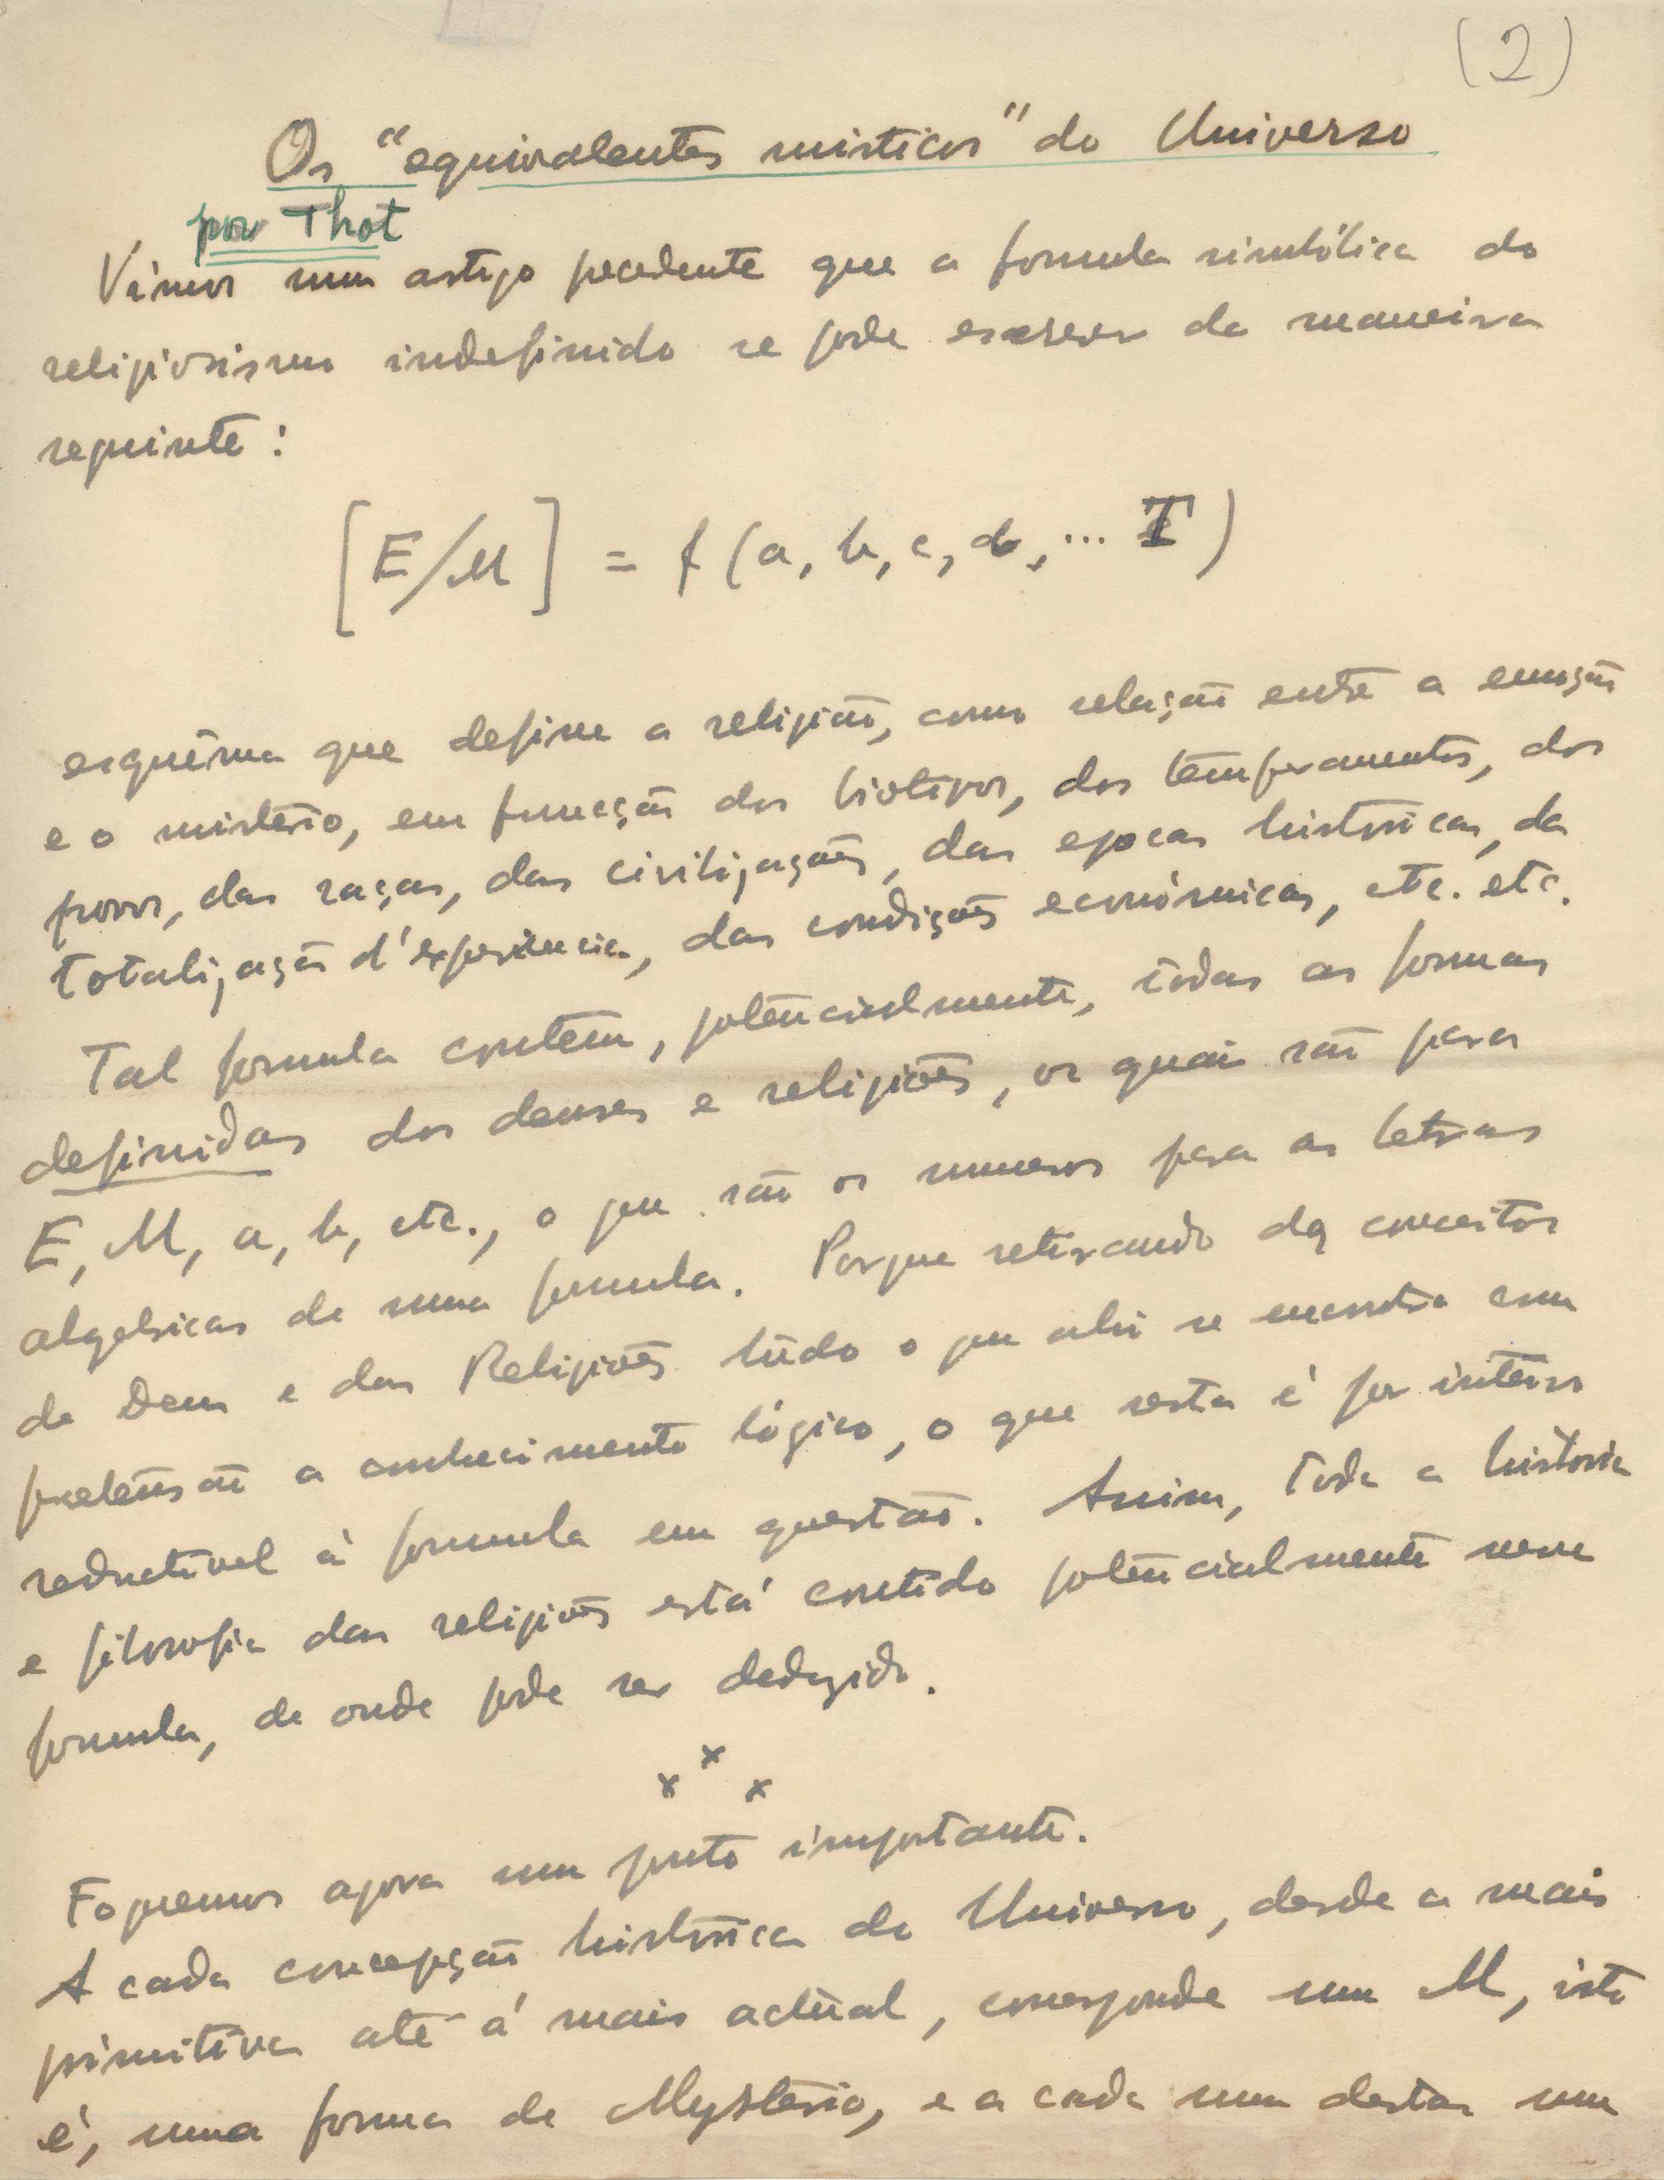 (2)
Os "equivalentes misticos" do Universo
por Thot
Vimos num artigo precedente que a formula simbólica do
religiosismo indefinido se pode escrever da maneira
seguinte:
[E/M] = f (a, b, c, d, ... T)
esquêma que define a religião, como relação entre a emoção
e o mistério, em funcção dos biotipos, dos temperamentos, dos
povos, das raças, das civilizações, das epocas historicas, da
totalização d'experiencia, das condições económicas, etc. etc.
Tal formula contém, potencialmente, todas as formas
definidas dos deuses e religiões, os quais são para
E, M, a, b, etc., o que são os numeros para as letras
algebricas de uma formula. Porque retirando dos conceitos
de Deus e das Religiões tudo o que ahi se encontra com
pretensão a conhecimento lógico, o que resta é por inteiro
reductivel á formula em questão. Assim, toda a historia
e filosofia das religiões está contido potencialmente nessa
formula, de onde pode ser deduzido.
x x x
Foquemos agora um ponto importante.
A cada concepção histórica do Universo, desde a mais
primitiva até á mais actual, corresponde um M, isto
é, uma forma de Mystério, e a cada uma destas um